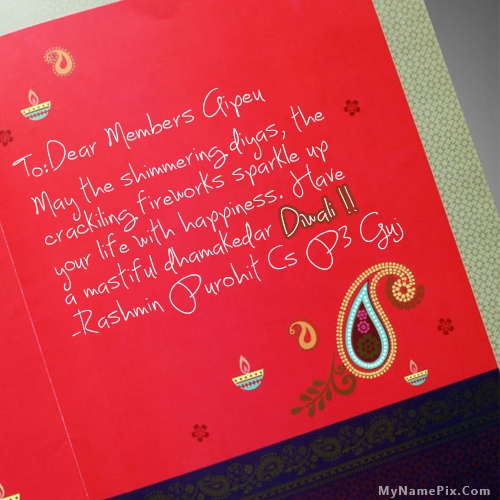 To:Dear Members Gipeu
May the shimmering diyas, the
crackiling fireworks sparkle up
your life with happiness. Have
a mastiful dhamakedar Diwali !!
-Rashmin Purohit Cs P3 Guj
MyNamePix.Com